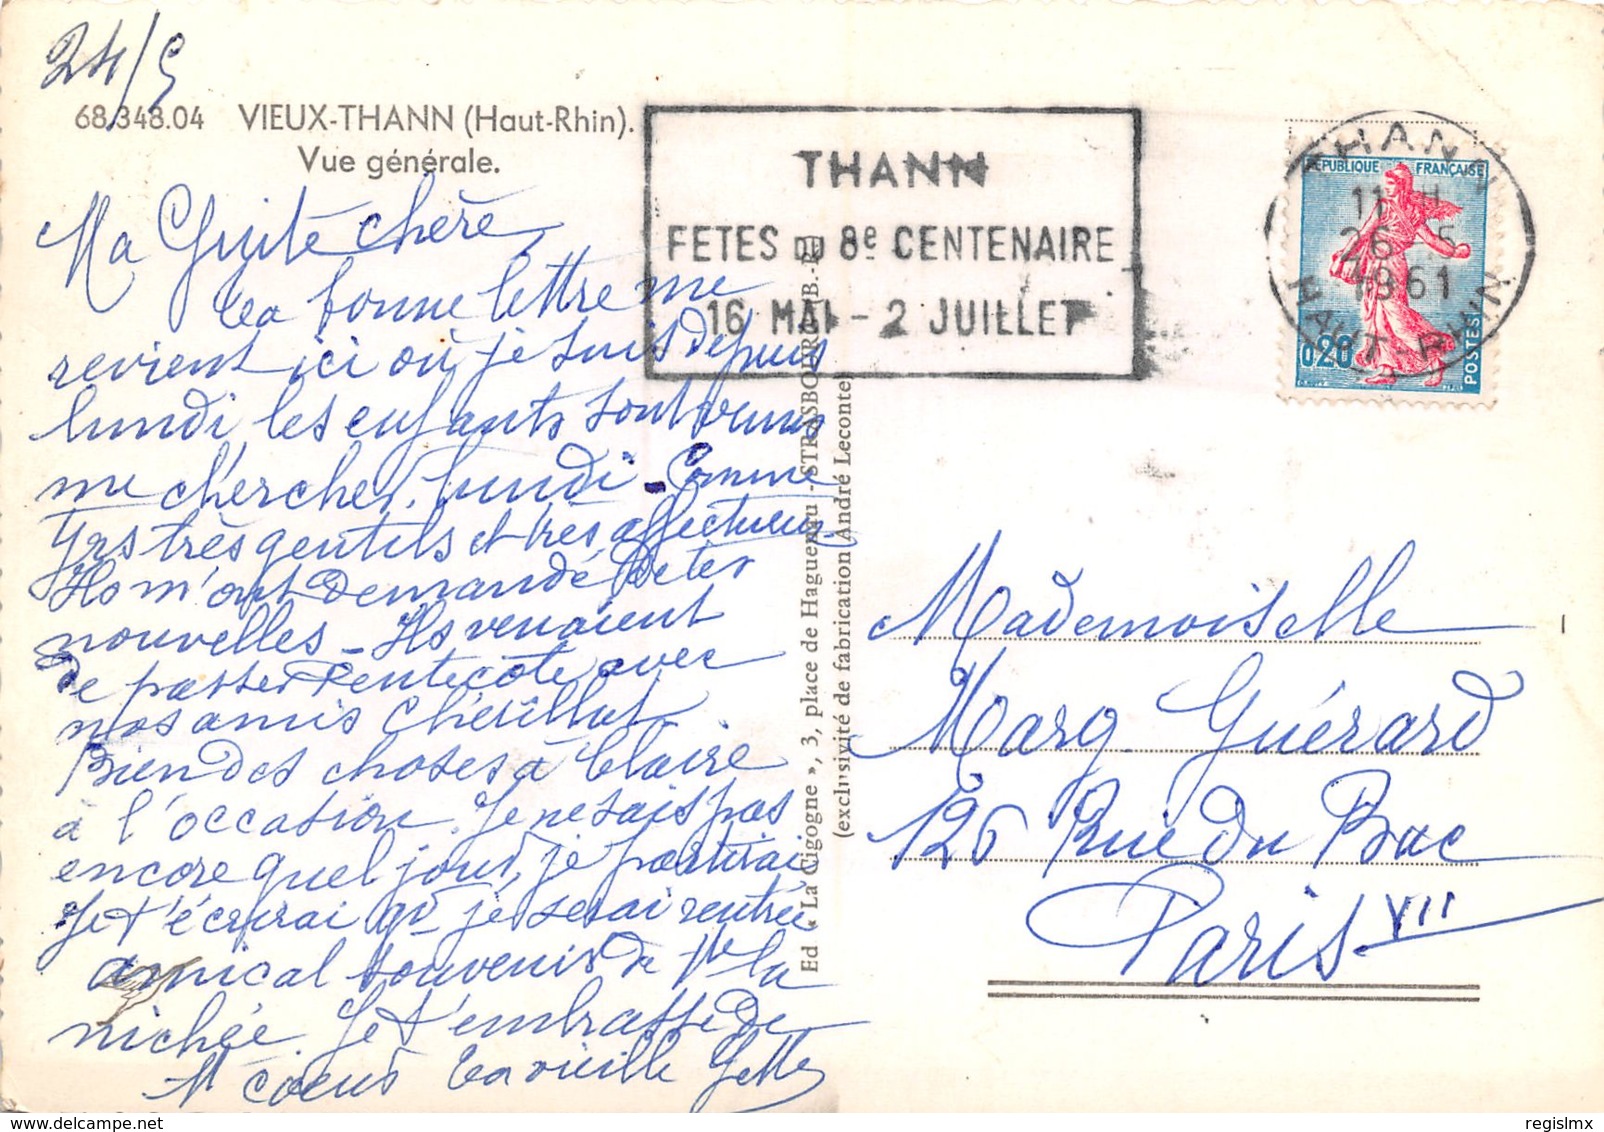 24/5
68.348.04 VIEUX-THANN (Haut-Rhin).
Vue générale.
Ma Guite chère,
ta bonne lettre me
revient ici où je suis depuis
lundi les enfants sont venus
me chercher. lundi - Comme
trs très gentils et très affectueux
Ils m'ont demandé de tes
nouvelles - Ils venaient
de passer Pentecôte avec
nos amis
Bien des choses à Claire
à l'occasion. Je ne sais pas
encore quel jour, je partirai
Je t'écrirai qd je serai rentrée
amical souvenir de tte la
nichée. Je t'embrasse de
tt coeur ta vieille
THANN
FETES DU 8e CENTENAIRE
16 MAI - 2 JUILLET
THANN
11 H
26-5
1961
HAUT-RHIN
RÉPUBLIQUE FRANÇAISE
0,20
POSTES
Ed « La Cigogne », 3, place de Haguenau - STRASBOURG
(exclusivité de fabrication André Leconte)
Mademoiselle
Marg Guérard
126 Rue du Bac
Paris VII
regisImx